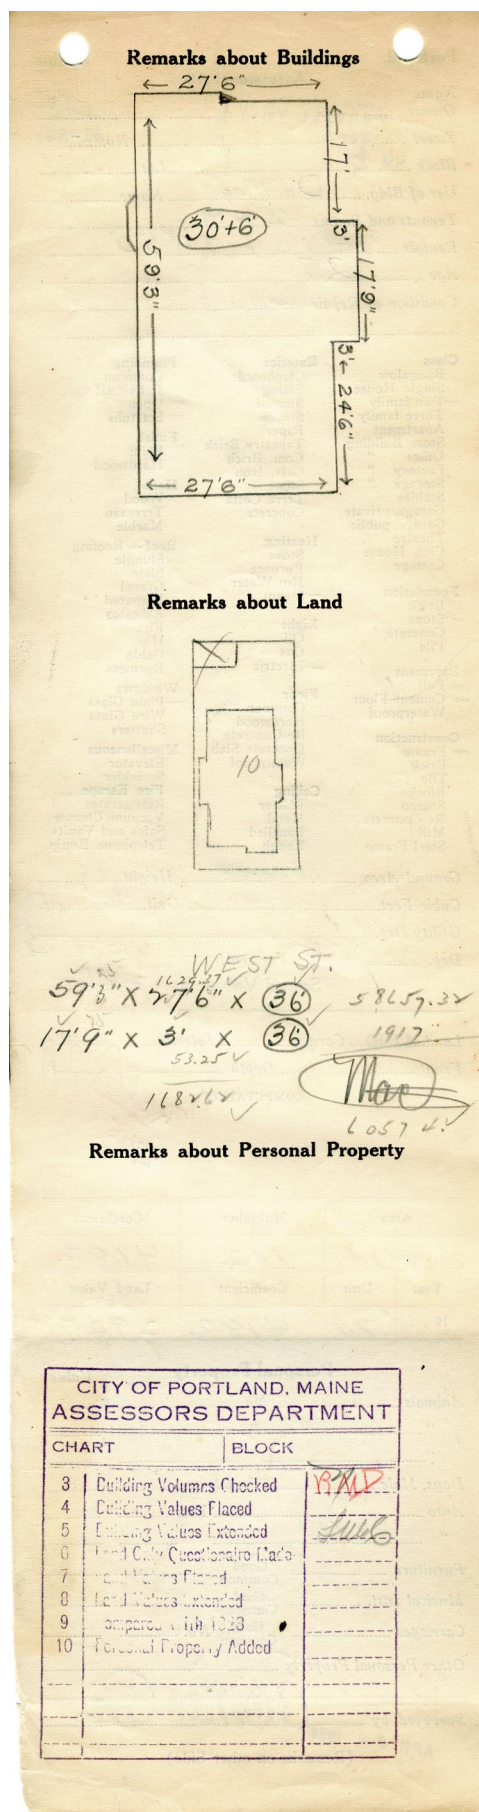 Remarks about Buildings
27'6"
17'
30'+6'
3'
59'3"
17'9"
3'
24'6"
27'6"
Remarks about Land
10
WEST ST.
25 1629.37
59'3" X 27'6" X 36' 58657.32
25
17'9" X 3' X 36' 1917.
53.25
1682.62
Mac
6057 4.
Remarks about Personal Property
CITY OF PORTLAND, MAINE
ASSESSORS DEPARTMENT
CHART BLOCK
3 Building Volumes Checked
4 Building Values Placed
5 Building Values Extended
6 Land Only Questionaire Made
7 Land Values Placed
8 Land Values Extended
9 Compared with 1923
10 Personal Property Added